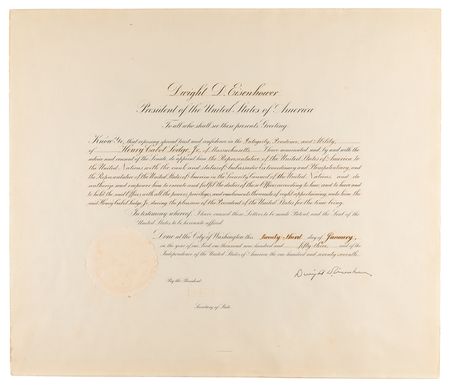 Dwight D. Eisenhower
President of the United States of America
To all who shall see these presents, Greeting:
Know Ye, that reposing special trust and confidence in the Integrity, Prudence, and Ability
of Henry Cabot Lodge, Jr., of Massachusetts, I have nominated, and by and with the
advice and consent of the Senate, do appoint him the Representative of the United States of America to
the United Nations, with the rank and status of Ambassador Extraordinary and Plenipotentiary, and
the Representative of the United States of America in the Security Council of the United Nations, and do
authorize and empower him to execute and fulfil the duties of these Offices according to law, and to have and
to hold the said Offices, with all the powers, privileges, and emoluments thereunto of right appertaining, unto him, the
said Henry Cabot Lodge, Jr., during the pleasure of the President of the United States for the time being.
In testimony whereof, I have caused these Letters to be made Patent, and the Seal of the
United States to be hereunto affixed.
Done at the City of Washington this twenty-third day of January,
in the year of our Lord one thousand nine hundred and fifty-three, and of the
Independence of the United States of America the one hundred and seventy-seventh.
Dwight D. Eisenhower
By the President:
Secretary of State.